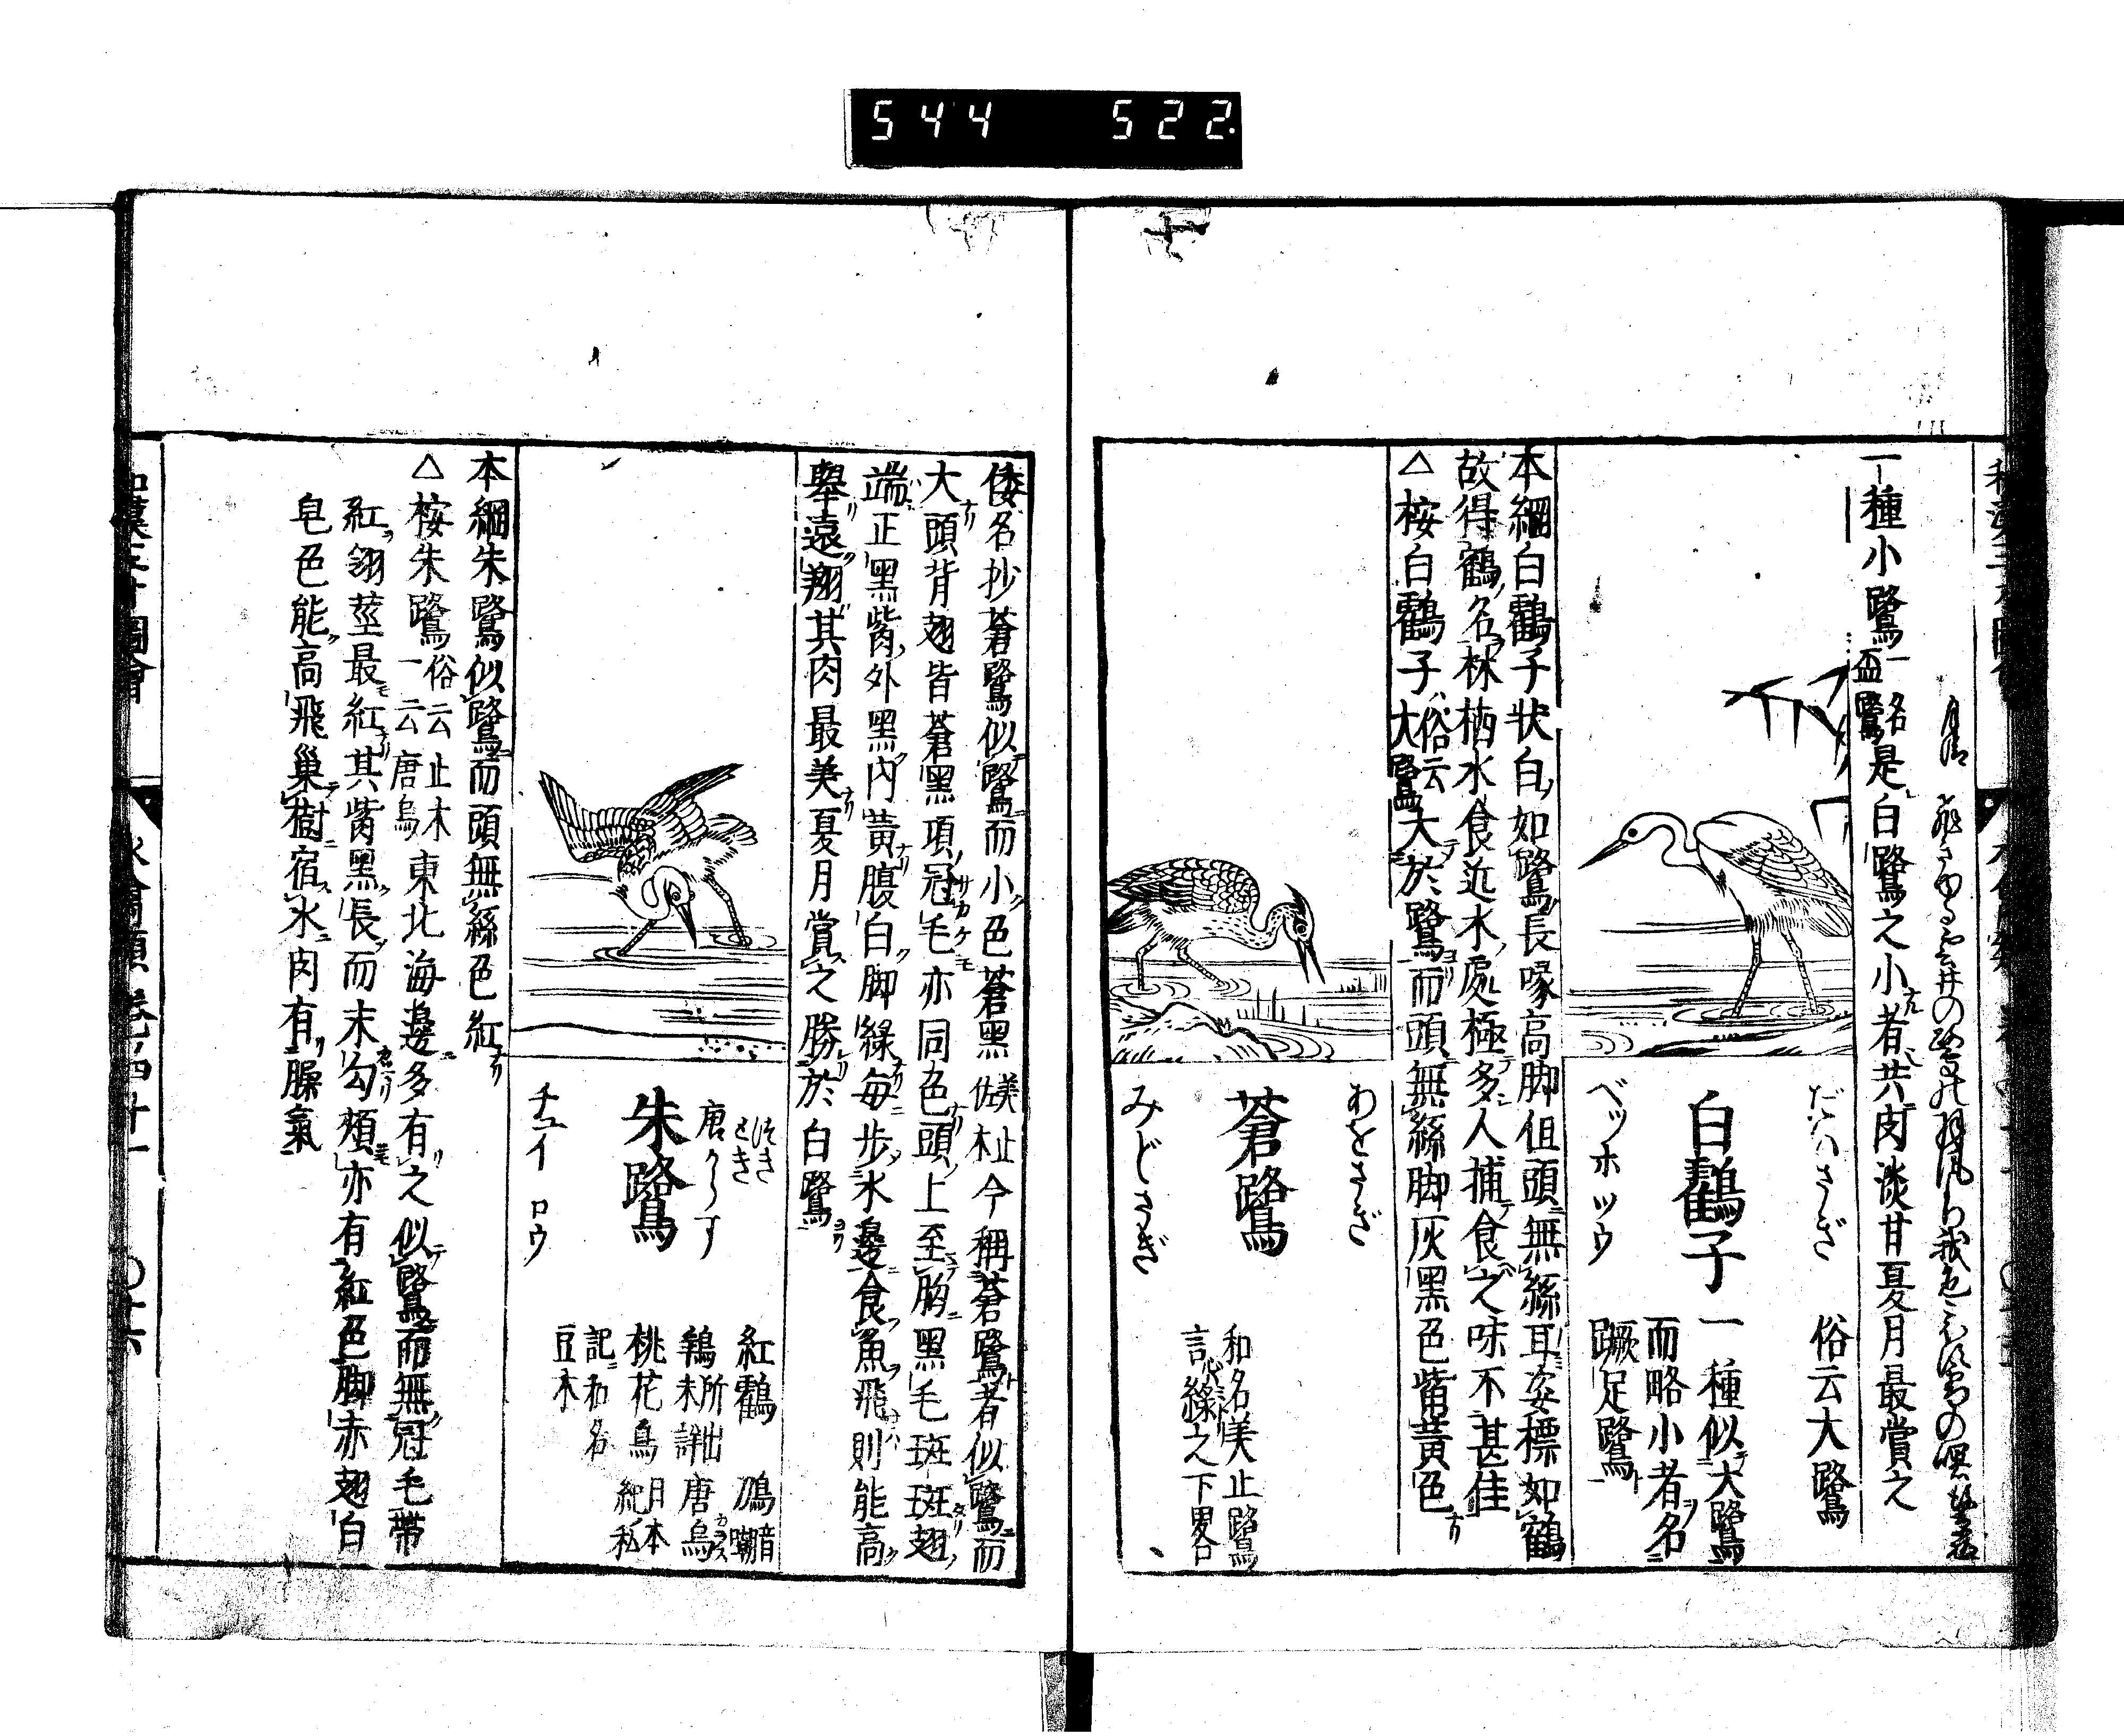 544 522
一種小鷺一名盃鷺是白鷺之小者共肉淡甘夏月最賞之
だいさぎ
白鸛子
ベッホツウ
俗云大鷺
一種似大鷺
而略小者名
蹶足鷺
本綱白鸛子狀白如鷺長喙高脚但頭無絲耳姿標如鶴
故得鶴名林栖水食近水處極多人捕食之味不甚佳
△桉白鸛子俗云大鷺大於鷺而頭無絲脚灰黑色觜黃色
あをさぎ
蒼鷺
みどさぎ
和名美止鷺
言緑之下畧
倭名抄蒼鷺似鷺而小色蒼黑美止佐木今稱蒼鷺者似鷺而
大頭背翅皆蒼黑項冠毛亦同色頭上至胸黑毛斑斑翅
端正黑觜外黑內黃腹白脚綠每步水邊食魚飛則能高
舉遠翔其肉最美夏月賞之勝於白鷺
とき
唐がらす
朱鷺
チュイ ロウ
紅鸛
鴇 所出未詳 唐烏
桃花鳥 日本紀私
記和名
豆木
本綱朱鷺似鷺而頭無絲色紅
△桉朱鷺俗云止木一云唐烏東北海邊多有之似鷺而無冠毛帶
紅翎莖最紅其觜黑長而末勾頰亦有紅色脚赤翅白
皂色能高飛巢樹宿水肉有臊氣
水禽類 卷四十一